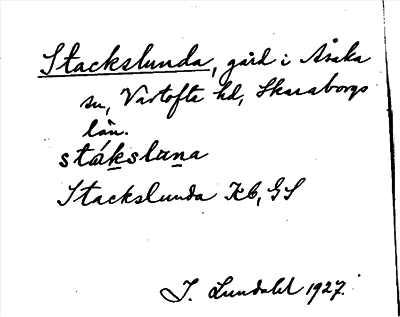 Stackslunda, gård i Åsaka
sn, Vartofta hd, Skaraborgs
län.
stákslu̱na
Stackslunda Kb, GS
I. Lundahl 1927.